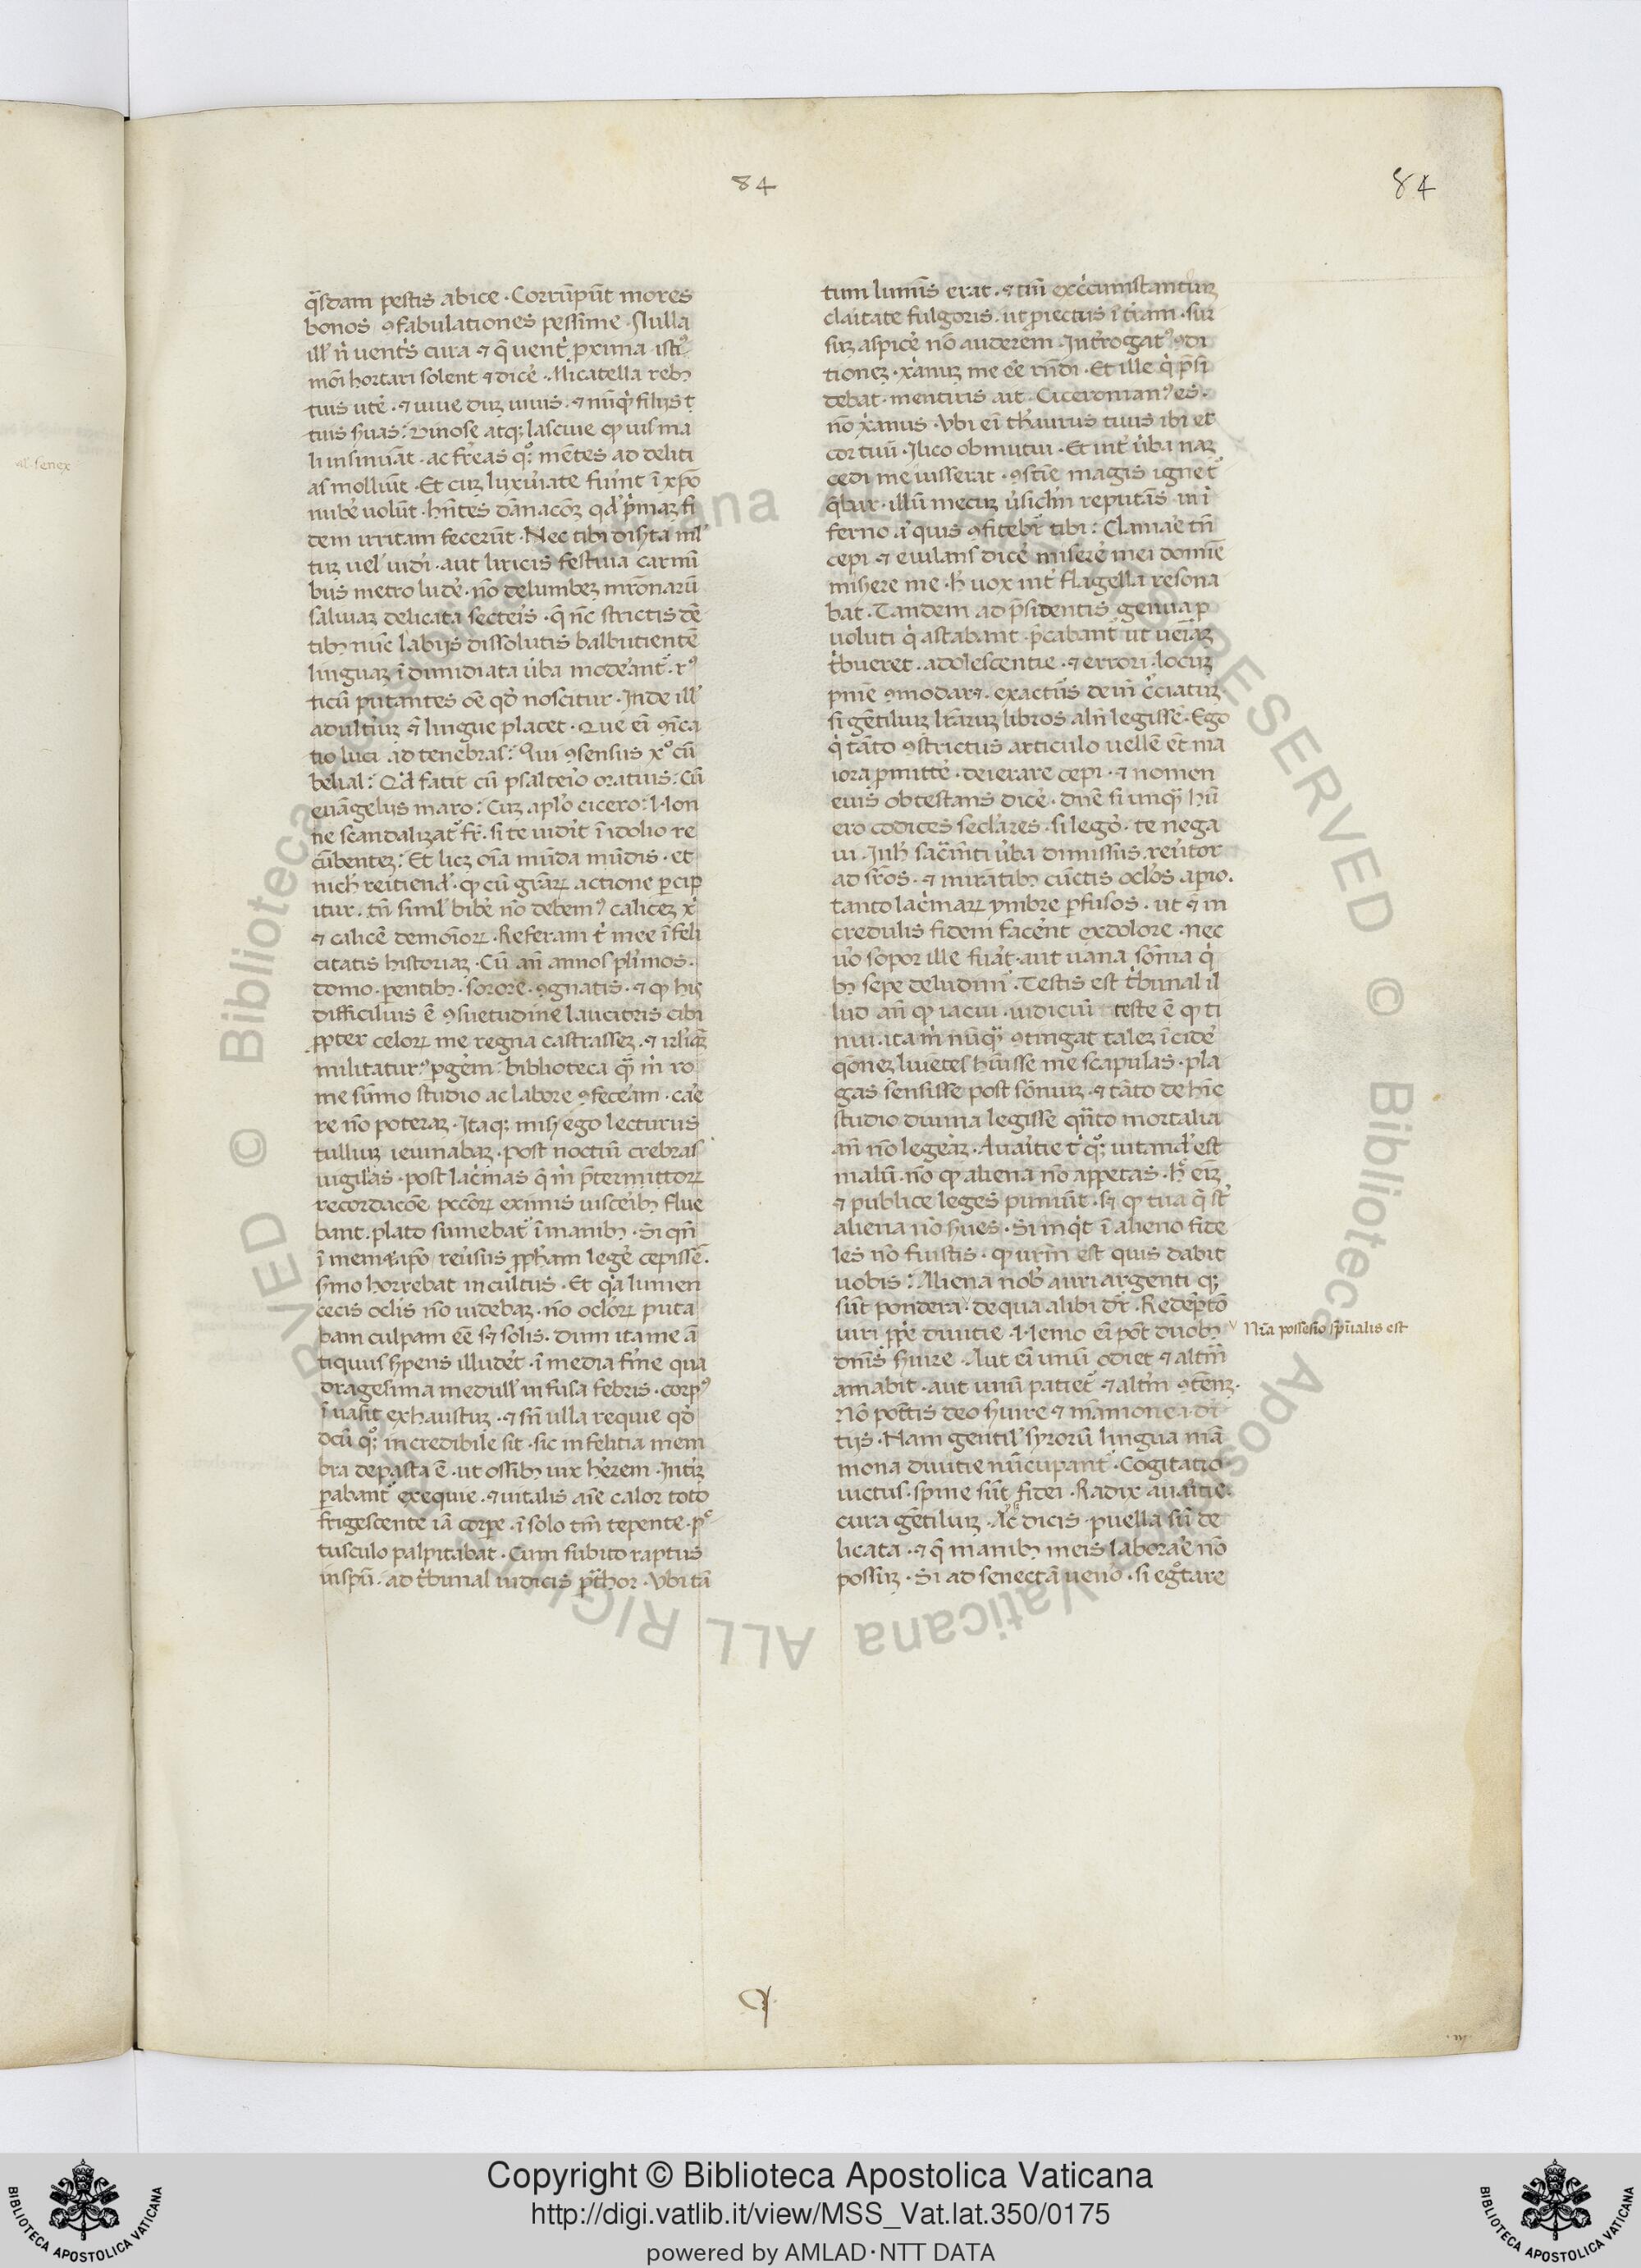 84
84
q̄sdam pestis abice · Corrūpūt mores
bonos ꝯfabulationes pessime · Nulla
tuis utē · ⁊ uiue duꝫ uiuis · ⁊ nūq̇ filijs t̄
tuis ẜuas : Vinose atqꝫ lasciue
as molliūt · Et cuꝫ luxuiate fuint ī xp̄o
nubē uolūt · hn̄tes dānacōꝫ qd̓ p̓maꝫ fi
dem irritam fecerūt · Nec tibi diẜta ml̓
tuꝫ uel̓ uidi · aut liricis festiua carmī
bus metro ludē · nō delumbeꝫ mr̄onarū
saliuaꝫ delicata secteis · q̄ nc̄ strictis dē
tibꝫ nūc labijs dissolutis balbutientē
linguaꝫ ī dimidiata ủba modeant᷑ · r⁹
ticū putantes oē qd̓ noscitur · Inde ill̓
adultiuꝫ ē lingue placet · Que ei ꝯīca
tio luci ad tenebras : Qui ꝯsensus x̊ cū
belial : Qd̓ facit cū psalteio oratius : Cū
euāgelijs maro : Cuꝫ aplo cicero : Non
ne scandalizat᷑ fr̄ · si te uidit ī idolio re
cūbenteꝫ : Et licꝫ oīa mūda mūdis · et
nich̓ reitiend̓ · ꝙ cū gr̄aꝝ actione ꝑcip
itur · tn̄ siml̓ bibē nō debem⁹ caliceꝫ x̓
⁊ calicē demōioꝝ · Referam t̓ mee īfeli
citatis historiaꝫ · Cū an̄ annos pl̓imos ·
domo · ꝑentibꝫ · sorore · ꝯgnatis · ⁊ ꝙ hiꝫ
difficilius ē ꝯsuetudine laucioris cibi
ꝓpter celoꝝ me regna castrasseꝫ · ⁊ irl̓iꝫ
militatur⁹ ꝑgem : biblioteca qꝫ m̓ ro
me sūmo studio ac labore ꝯfeceam · cae
re nō poteraꝫ · Itaqꝫ misẜ ego lecturus
tulliuꝫ ieiunabaꝫ · post noctiū crebras
uigil̓as · post lac̓mas q̄ m̓ p̄teritoꝝ
recordacōe pccōꝝ eximis uisceibꝫ flue
bant · plato sumebat᷑ ī manibꝫ · Si qn̄
ī memetip̄o reủsus ꝓph̓am legē cepissē ·
ẜmo horrebat incultus · Et q̓a lumen
cecis ocl̓is nō uidebaꝫ · nō ocl̓oꝝ puta
bam culpam ēe sꝫ solis · Dum ita me ā
tiquus ẜpens illudēt · ī media fme qua
dragesima medull̓ infusa febris · corp⁹
īuasit exhaustuꝫ · ⁊ sn̄ ulla requie qd̓
dcū qꝫ incredibile sit · sic infelitia mem
bra depasta ē · ut ossibꝫ uix h̓erem · Intiꝫ
ꝑabant᷑ exequie · ⁊ uitalis aīe calor toto
frigescente iā corꝑe · ī solo tm̄ tepente · p
tusculo palpitabat · Cum subito raptus
in spū · ad t̓bunal iudicis p̄t̓hor · Vbi tā
tum lumis erat · ⁊ tm̄ ex c̓cumstantiuꝫ
claitate fulgoris · ut ꝓiectus ī t̓ram · sur
suꝫ aspicē nō auderem · Int̓rogat⁹ ꝯdi
tioneꝫ · x̓anuꝫ me ēe rn̄di · Et ille q̓ p̄si
debat · mentiris ait · Ciceroman⁹ es ·
nō x̓anus · Vbi ei th̓aurus tuus ibi et
cor tuū · Ilico obmutui · Et int̓ ủba naꝫ
cedi me iusserat · ꝯsciē magis igne t᷑
q̄bar · illū mecuꝫ ủsiclm̄ reputās · in ī
ferno aū quis ꝯfitebr̄ tibi : Clamae tn̄
cepi · ⁊ eiulans dicē miserē mei domīe
misere me · h̓ uox int̓ flagella resona
bat · Tandem ad p̄sidentis genua ꝓ
uoluti q̓ astabant · p̄cabant᷑ ut ueiaꝫ
t̓bueret · adolescentie · ⁊ errori · locuꝫ
pn̄ie ꝯmodaret · exactus dein̄ c̓ciatuꝫ ·
si gētiliuꝫ lr̄aruꝫ libros aln̄ legissē · Ego
q̓ tāto ꝯstrictus articulo uellē et̄ ma
iora ꝑmittē · deierare cepi · ⁊ nomen
euis obtestans dicē · dn̄e si unqꝫ hū
ero codices secl̓ares · si legō · te nega
ui · In h̓ sac̄mti ủba dimissus · reủtor
ad sr̄os · ⁊ mirātibꝫ cūctis ocl̓os apio ·
tanto lac̓maꝝ ymbre ꝑfusos · ut ⁊ in
credulis fidem facēnt ex dolore · nec
ủo sopor ille fuat · aut uana sōnia q̓
bꝫ sepe deludim̄ · Testis est t̓bunal il
lud an̄ ꝙ iacui · iudiciū teste ē ꝙ ti
mui · ita m̓ nūqꝫ ꝯtingat taleꝫ īcidē
q̄oneꝫ liuētes h̓uisse me scapulas · pla
gas sensisse post sōnuꝫ · ⁊ tāto dehīc
studio diuina legisse qn̄to mortalia
an̄ nō legeaꝫ · Auaitie t̓ qꝫ uitand̓ est
malū · nō ꝙ aliena nō appetas · h̓ eiꝫ
⁊ publice leges puniūt · sꝫ ꝙ tua q̄ st̓
aliena nō ẜues · Si inq̓t ī alieno fide
les nō fuistis · ꝙ ur̄m est quis dabit
uobis : Aliena nob̓ auri argenti qꝫ
sūt pondera · de qua alibi dr̄ · Redēptō
uiri ꝓp̄e diuitie · Nemo ei pōt duobꝫ
Nr̄a possesio sp̄ualis est
dn̄is ẜuire · Aut ei unū odiet ⁊ altm̄
amabit · aut unū patiet᷑ ⁊ altm̄ ꝯtēnꝫ ·
Nō potīs deo ẜuire ⁊ māmone · i · di
tijs · Nam gentil̓ syrorū lingua mā
mona diuitie nūcupant᷑ · Cogitatio
uictus · spine sūt fidei · Radix auaitie ·
cura gētiliuꝫ · At dicis · puella sū de
licata · ⁊ q̄ manibꝫ meis laborae nō
possuꝫ · Si ad senectā uenō · si egrotare
al' senex
Copyright © Biblioteca Apostolica Vaticana
http://digi.vatlib.it/view/MSS_Vat.lat.350/0175
powered by AMLAD·NTT DATA
BIBLIOTECA APOSTOLICA VATICANA
BIBLIOTECA APOSTOLICA VATICANA
© Biblioteca Apostolica Vaticana ALL RIGHTS RESERVED © Biblioteca Apostolica Vaticana ALL RIGHTS RESERVED